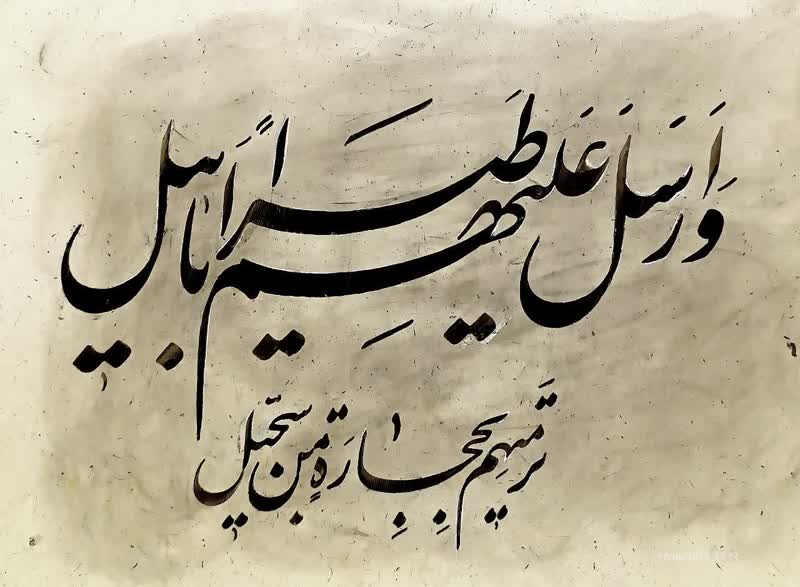 وَاَرسَلَ عَلَيهِم طَيرًا اَبابيل
تَرميهِم بِحِجارَةٍ مِن سِجّيلٍ